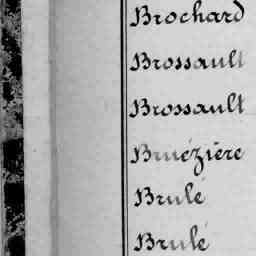 Brochard
Brossault
Brossault
Bruézière
Brulé
Brulé